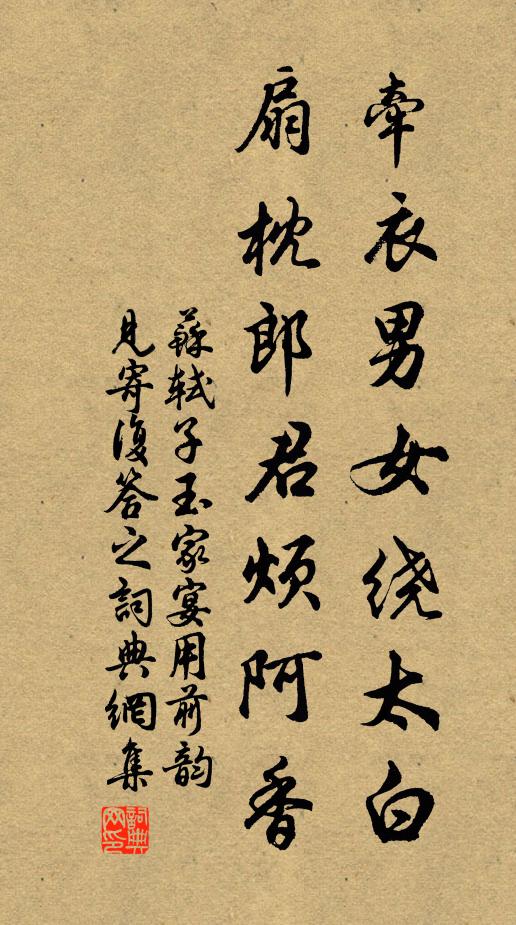 牵衣男女绕太白
扇枕郎君烦阿香
蘇軾子玉家宴用前韵
見寄復答之詞典網集
詞典网印